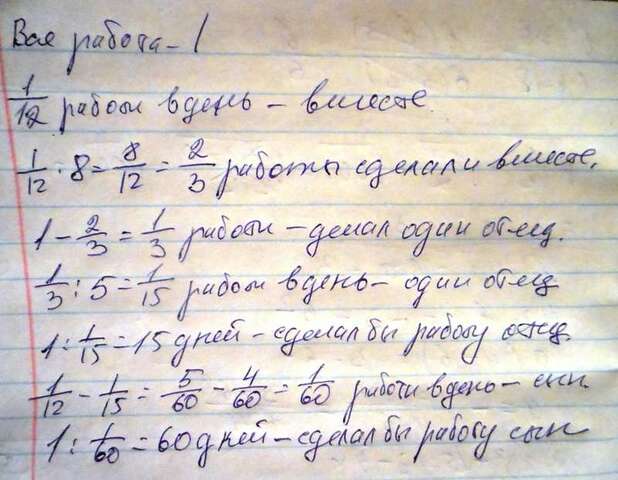 Вся работа - 1
1/12 работы в день - вместе.
1/12 · 8 = 8/12 = 2/3 работы сделали вместе.
1 - 2/3 = 1/3 работы - делал один отец.
1/3 : 5 = 1/15 работы в день - один отец
1 : 1/15 = 15 дней - сделал бы работу отец.
1/12 - 1/15 = 5/60 - 4/60 = 1/60 работы в день - сын.
1 : 1/60 = 60 дней - сделал бы работу сын